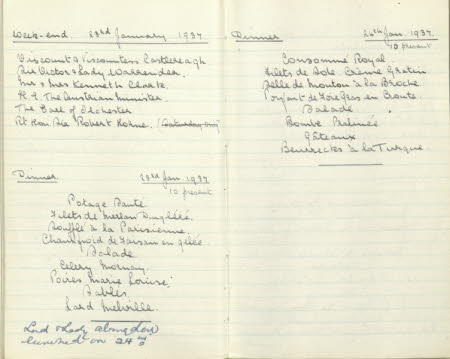 Week-end. 23rd January 1937.
Viscount & Viscountess Castlereagh
Sir Victor & Lady Warrender.
Mr & Mrs Kenneth Clark.
H. E. The Austrian Minister.
The Earl of Ilchester
Rt Hon. Sir Robert Horne. (Saturday only)
Dinner 23rd Jan 1937.
10 present
Potage Santé
Filets de Merlan Dugléré.
Soufflé à la Parisienne.
de Faisan en gelée
Salade
Celery Mornay
Poires Marie Louise.
Sablés.
Lard Melville.
Lord & Lady Abingdon
lunched on 24th
Dinner 24th Jan. 1937.
10 present
Consommé Royal
Filets de Sole Crème Gratin
Selle de Mouton à la Broche
Parfait de Foie Gras en Croute
Salade
Bombe Pralinée
Gâteaux
Beurrecks à la Turque